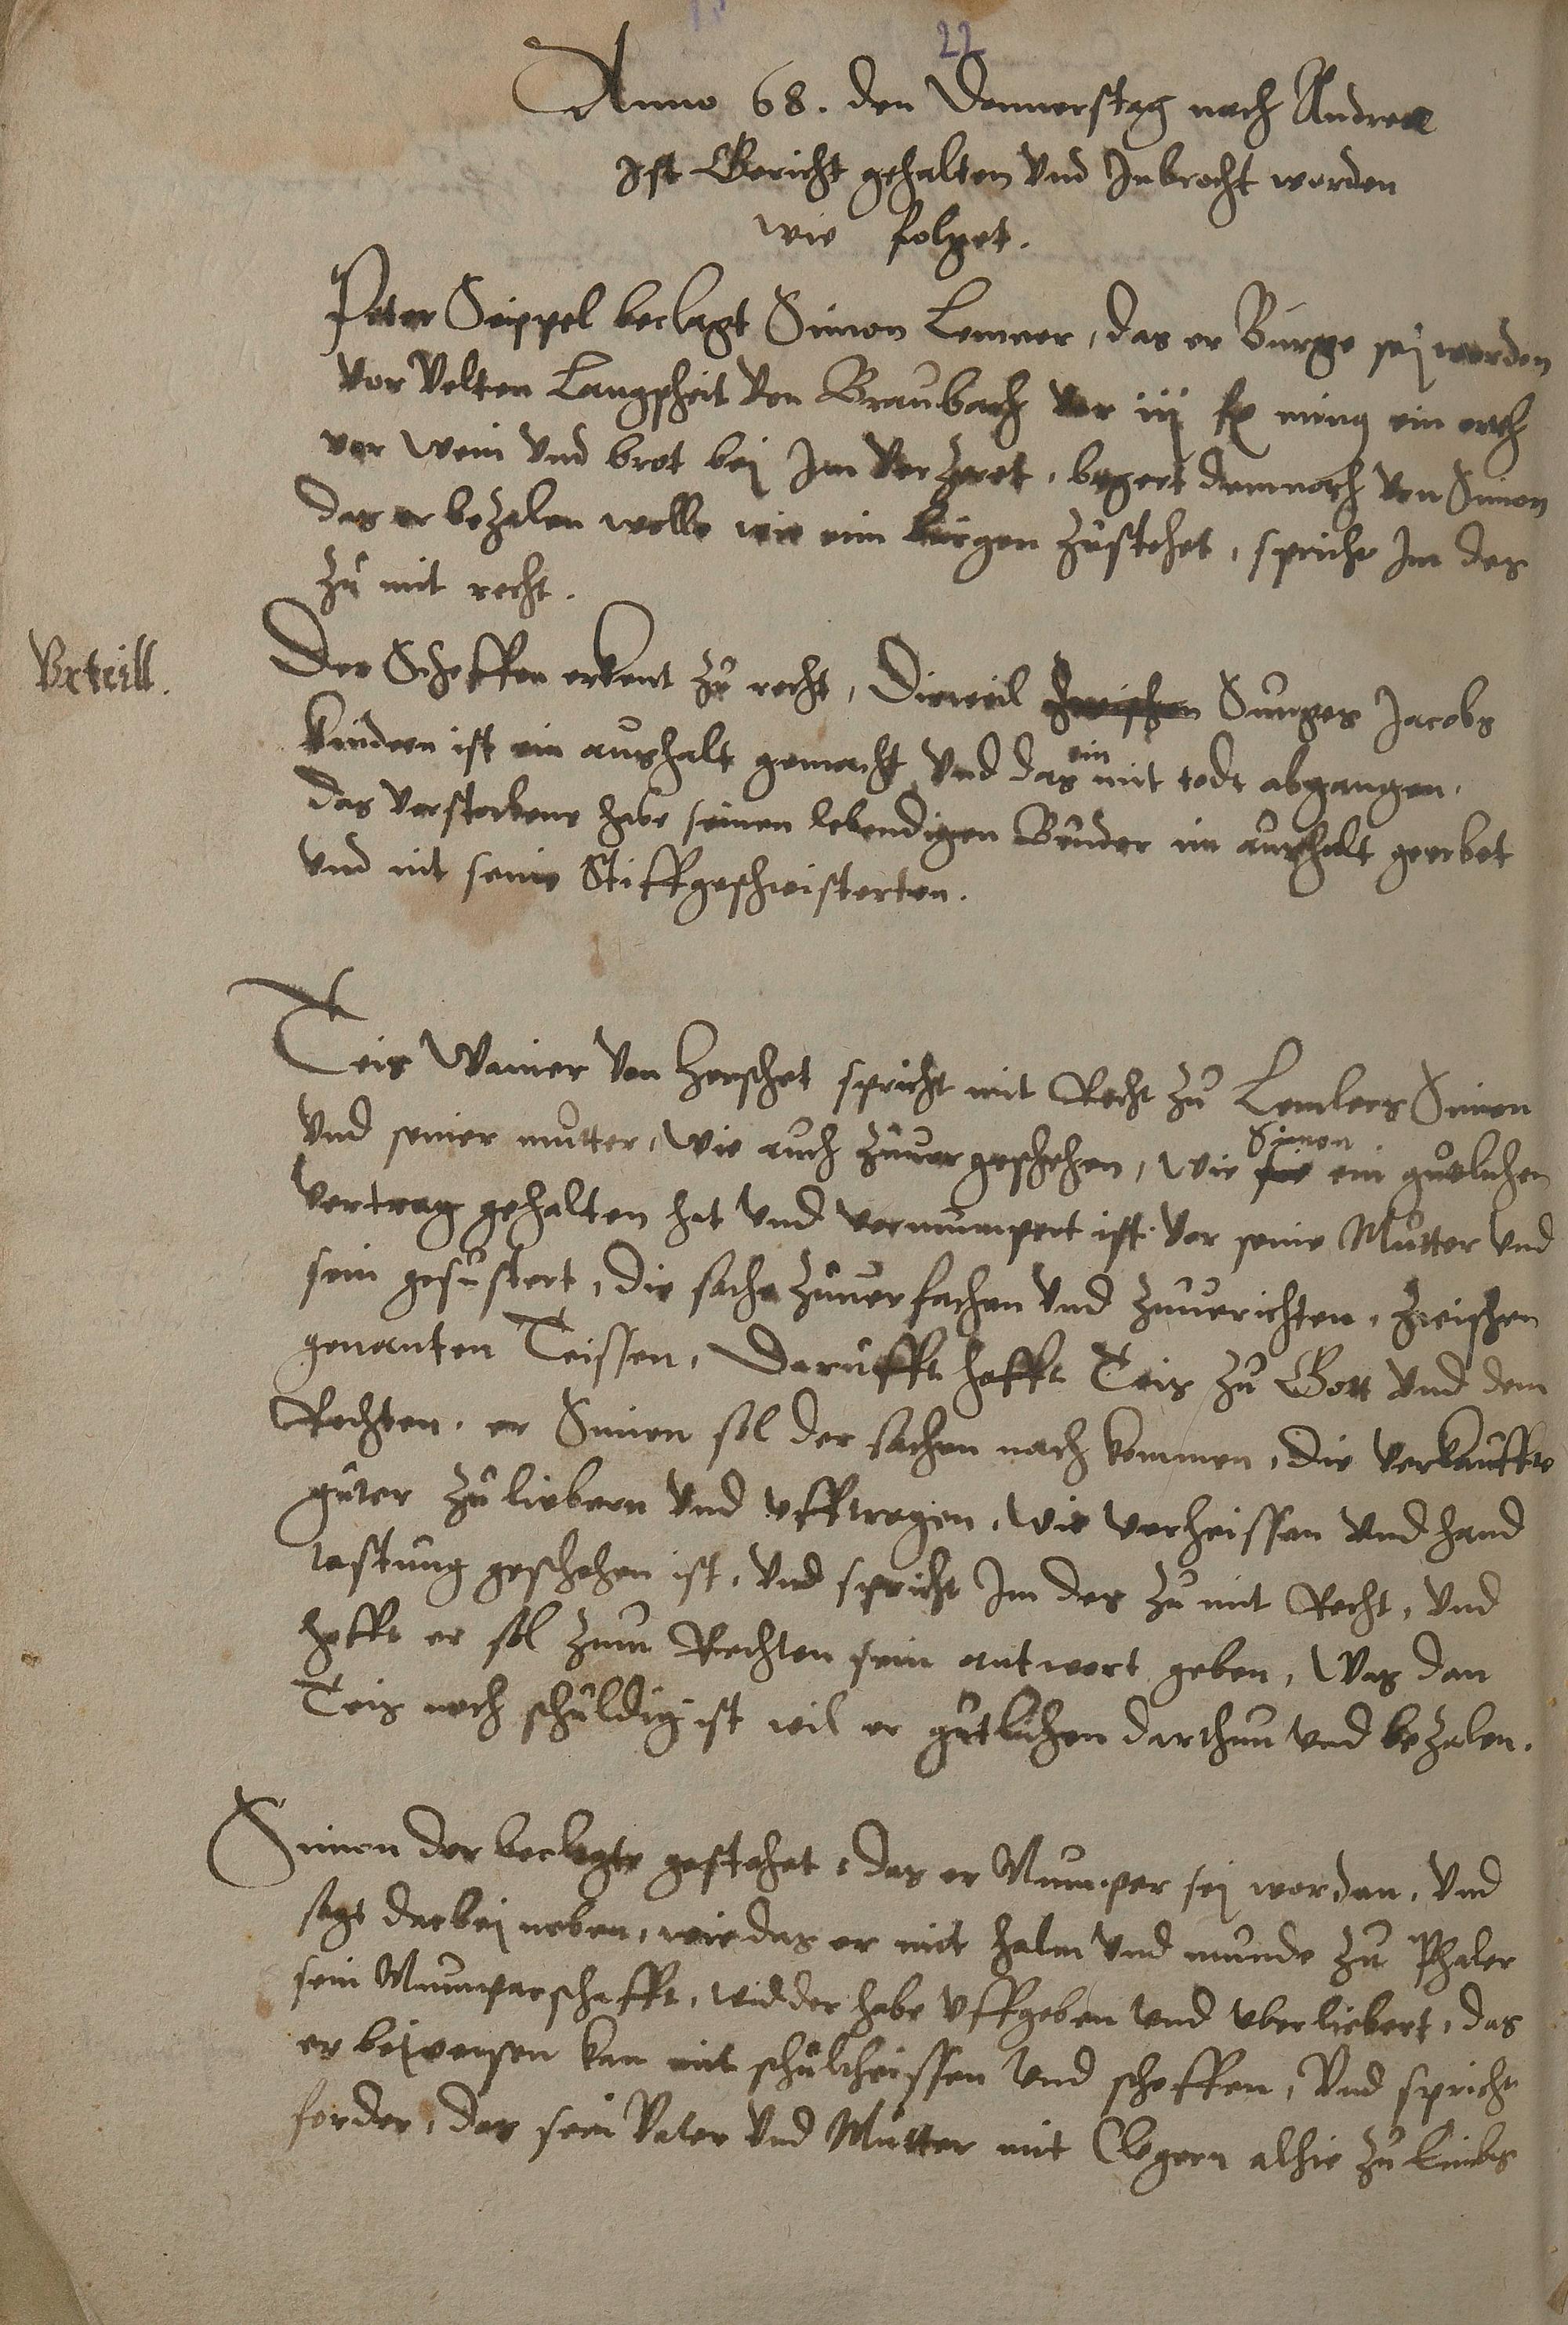 22
Anno 68. den Donnerstag nach Andreae
Ist Gericht gehalten vnd Inbracht worden
wie folget.
Peter Seippel beclagt Simon Lemner, das er Burge sej worden
vor Velten Langscheit von Braubach vor iij fl ming ein orth
vor wein vnd brot bej Im verzeret, begert demnach von Simon
das er bezalen wolle wie eim burgen zustehet, spricht Im das
zu mit recht.
Vrteill.
Der Scheffen erkent zu recht, Dieweil zwischen Sunges Jacobs
kindern ist ein aushalt gemacht vnd das ein mit todt abgangen,
das verstorbene habe seinen lebendigen Bruder im aushalt geerbet
vnd nit seine Stiffgeschwisterten.
Teis Wainer von Herschet spricht mit Recht zu Lemlers Simon
vnd seiner mutter, Wie auch zuuor geschehen, wie sie Simon ein gutlichen
vertrag gehalten hat vnd vermumpert ist vor seine Mutter vnd
sein gesustert, die sache zuuerfachen vnd zuuerichten, zwischen
genanten Teissen, Darufft hofft Teis zu Gott vnd dem
Rechten, er Simon sol der sachen nach kommen, die verkauffte
guter zu liebern vnd vfftragen, wie verheissen vnd hand
tastung geschehen ist, vnd spricht Im das zu mit Recht, vnd
hofft er sol zum Rechten sein antwort geben, Was dan
Teis noch schuldig ist wil er gutlichen darthun vnd bezalen.
Simon der beclagte gestehet, das er Mumper sej worden, vnd
sagt darbej neben, wie das er mit halm vnd munde zu Phaler
sein Mumparschafft, widder habe vffgeben vnd vberliebert, das
er bejweisen kan mit schultheissen vnd scheffen, Vnd spricht
forder, das sein Vater vnd Mutter mit Clegern alhie zu Limbs